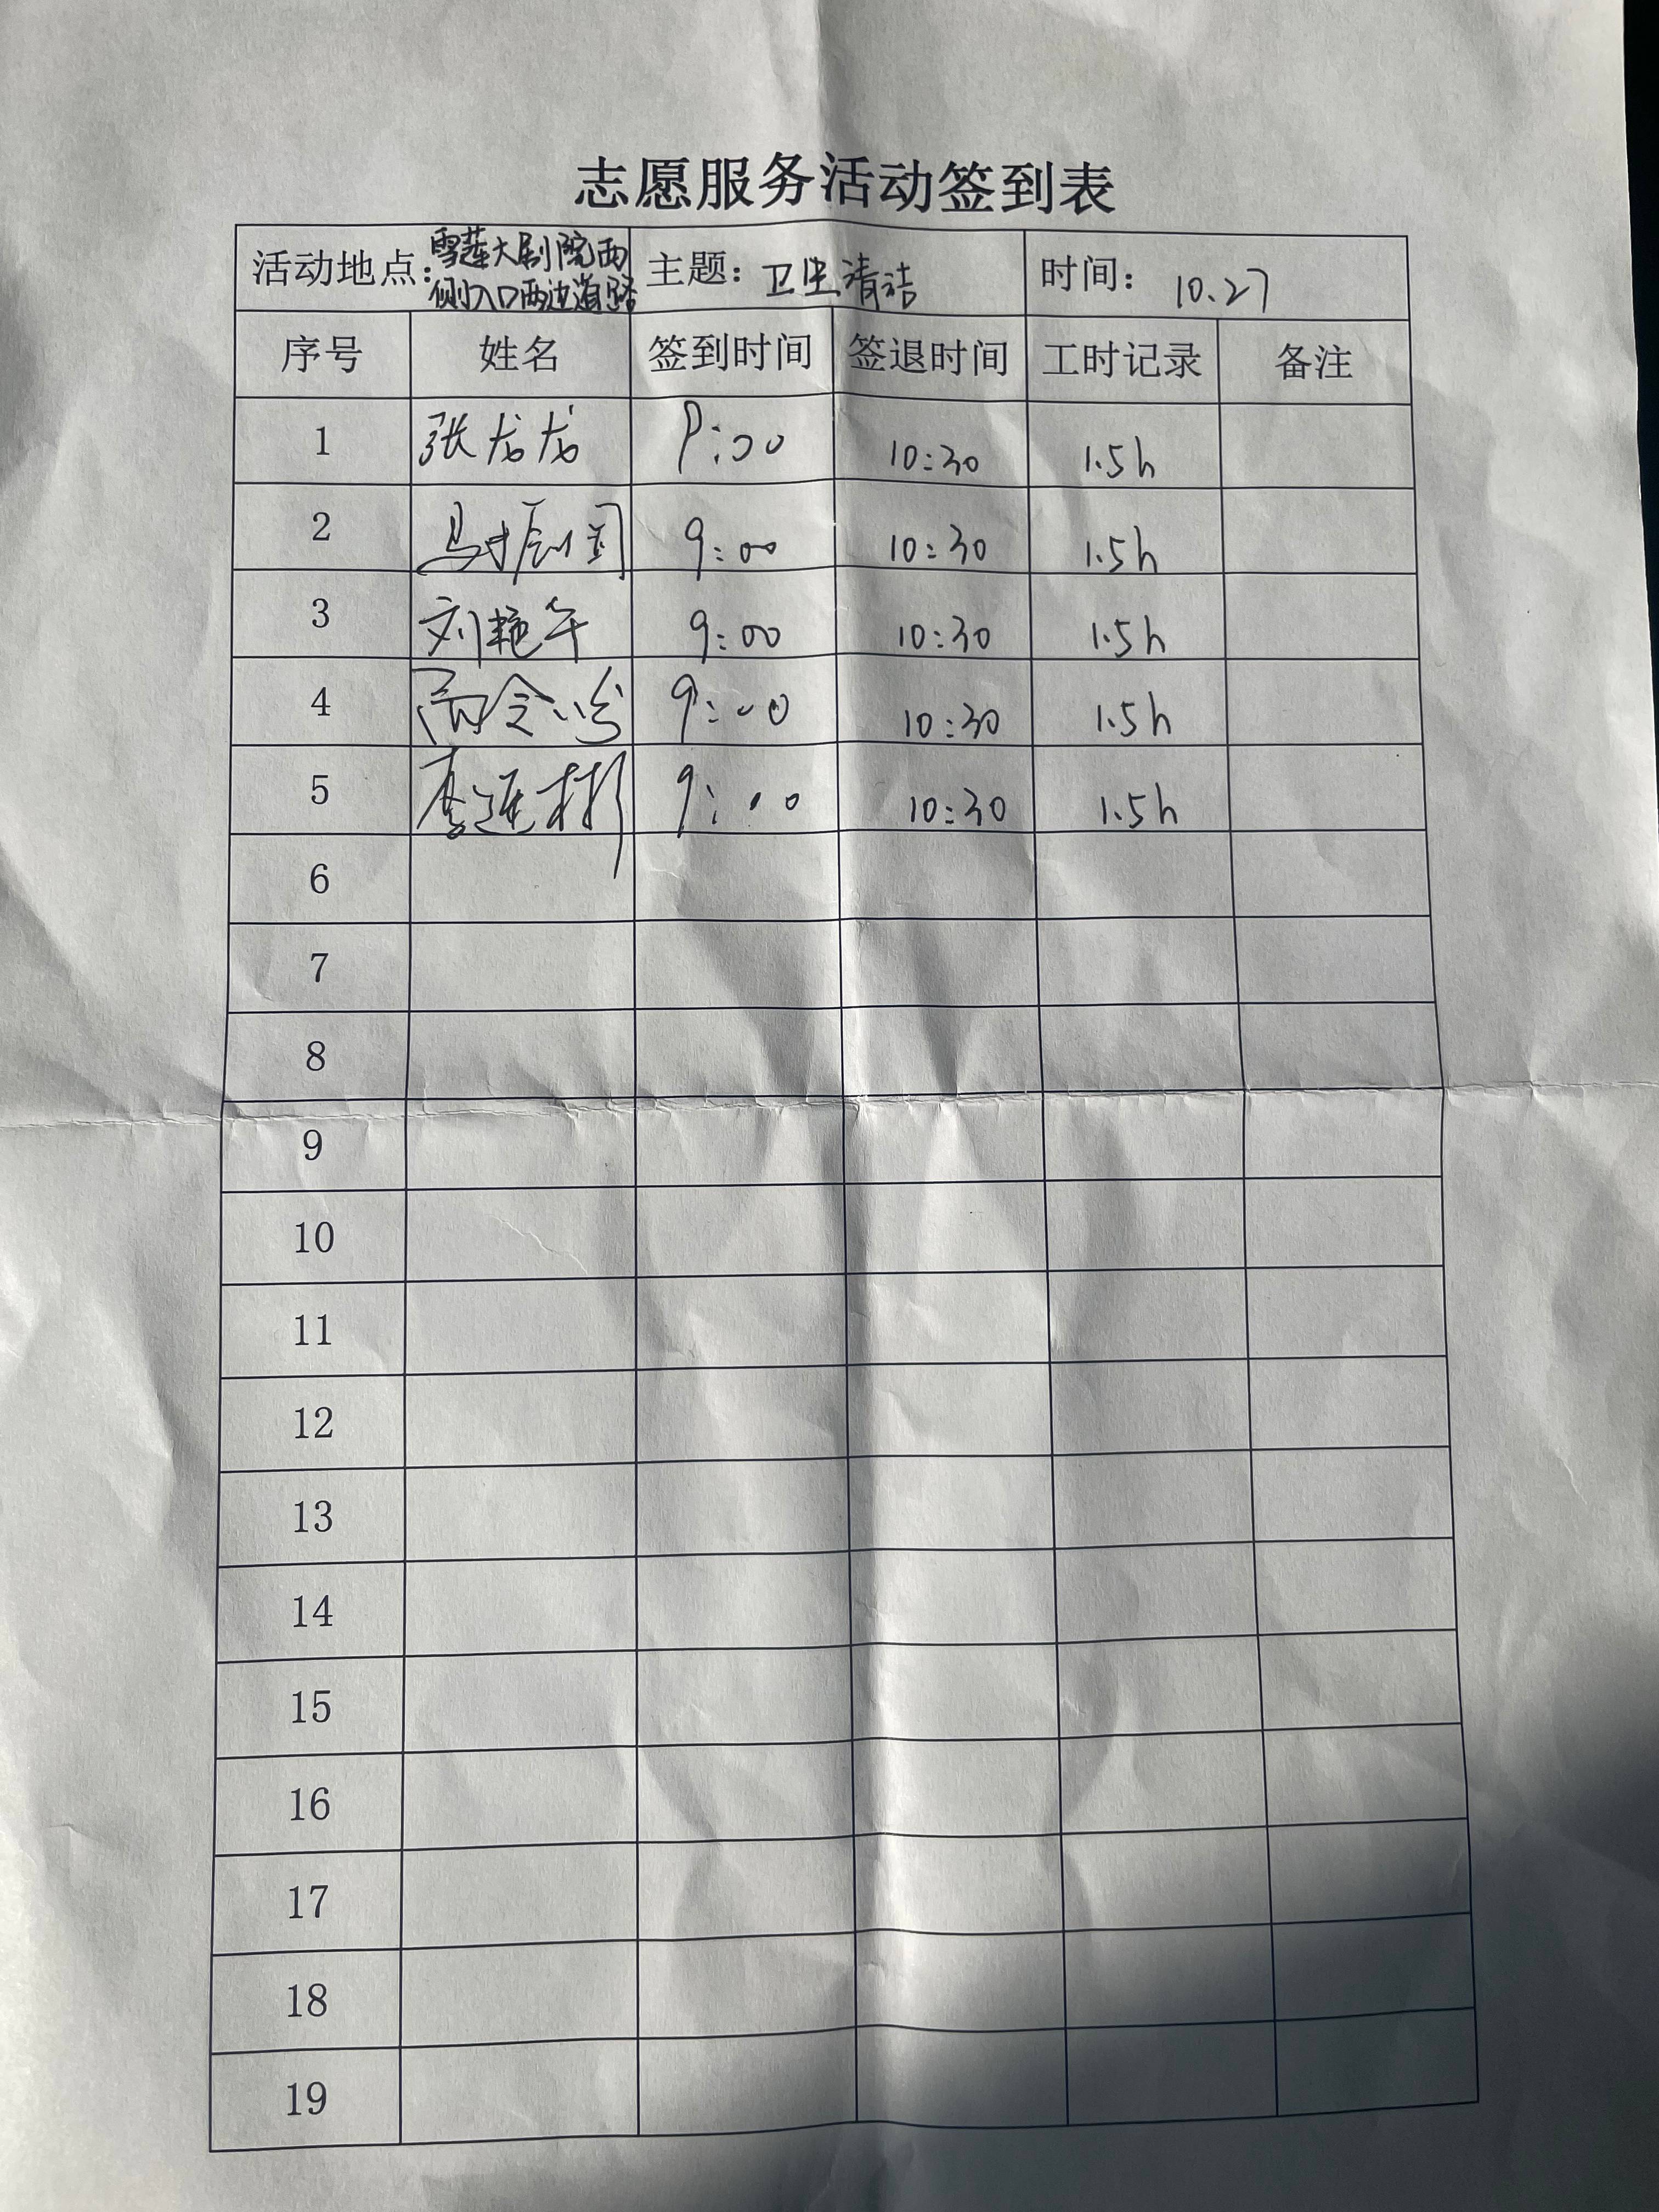 志愿服务活动签到表
活动地点：雪莲大剧院西侧入口两边道路 主题：卫生清洁 时间：10.27
序号 姓名 签到时间 签退时间 工时记录 备注
1 张龙龙 9:00 10:30 1.5h
2 9:00 10:30 1.5h
3 刘艳午 9:00 10:30 1.5h
4 9:00 10:30 1.5h
5 李莲彬 9:00 10:30 1.5h
6
7
8
9
10
11
12
13
14
15
16
17
18
19